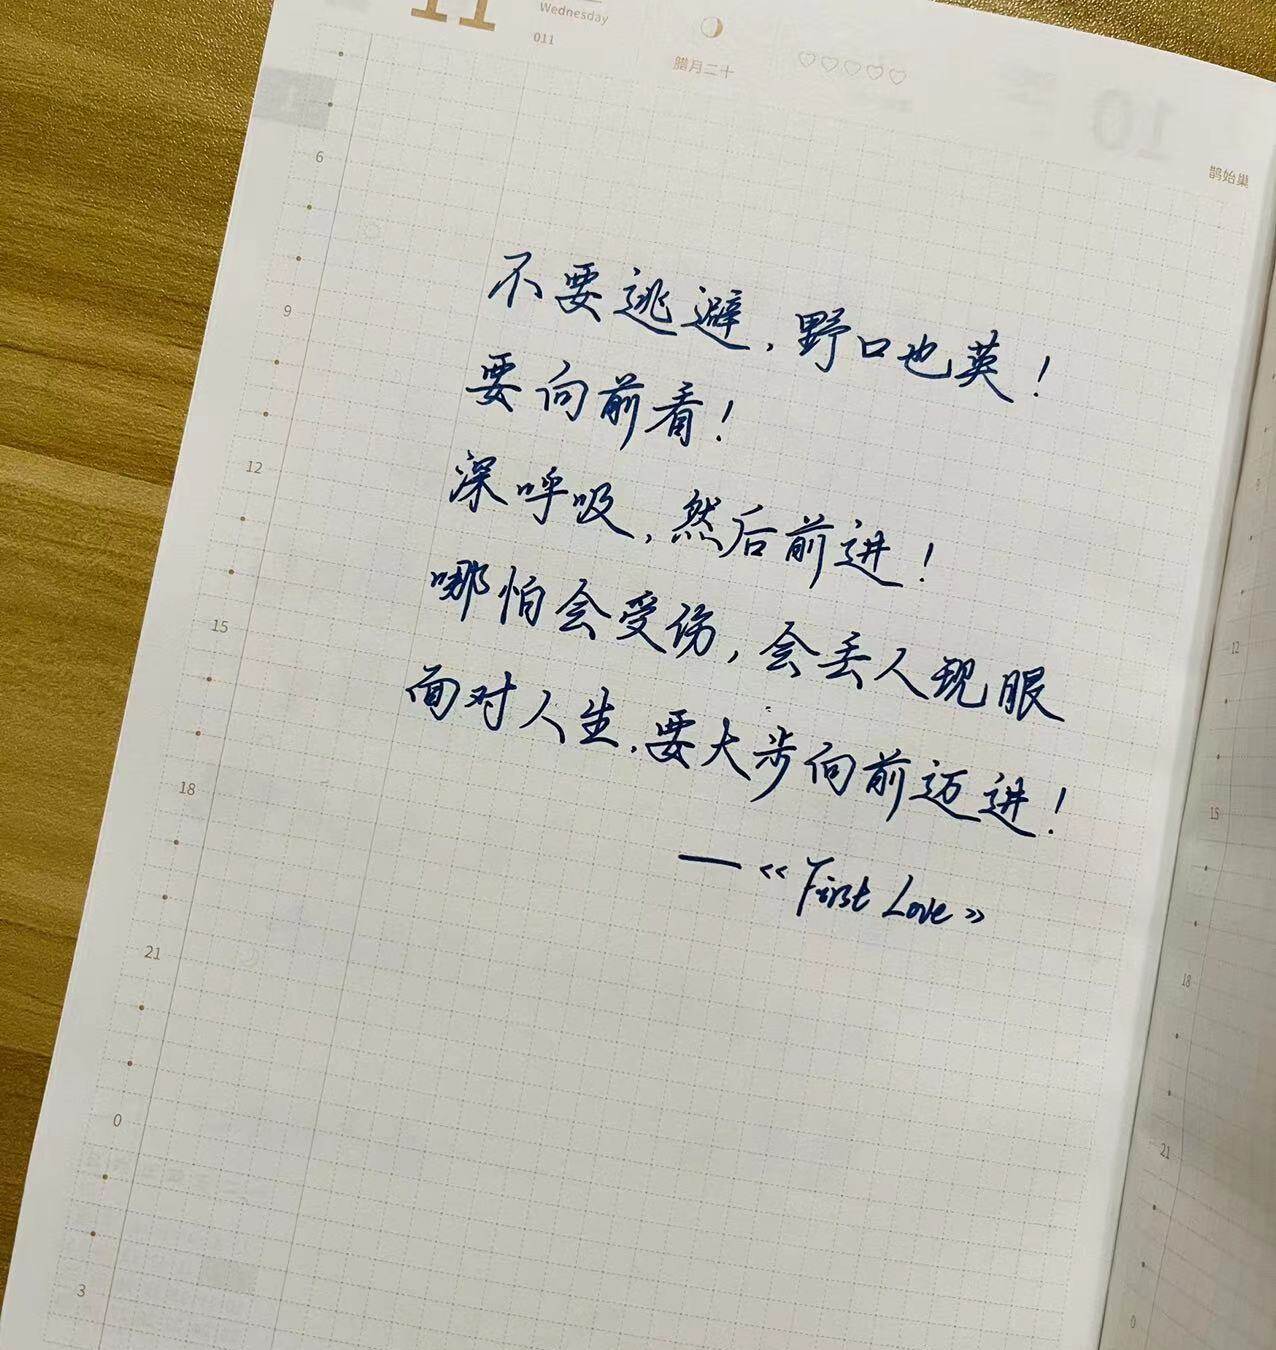 11
Wednesday
011
腊月二十
鹊始巢
6
9
12
15
18
21
0
3
不要逃避，野口也英！
要向前看！
深呼吸，然后前进！
哪怕会受伤，会丢人现眼
面对人生，要大步向前迈进！
——《First Love》
12
15
18
21
0